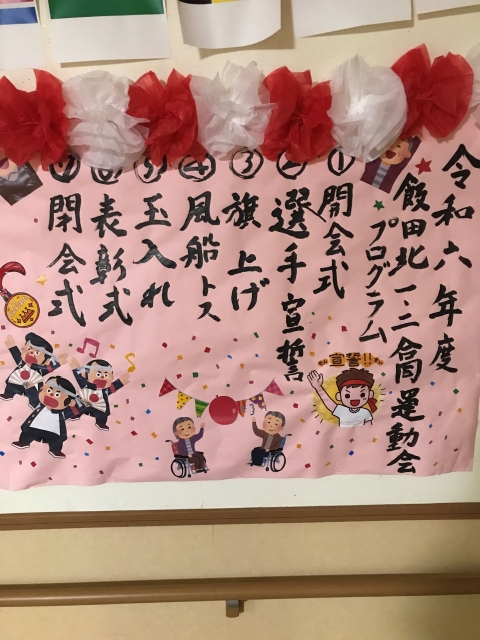 令和六年度
飯田北一・二合同運動会
プログラム
①開会式
②選手宣誓
③旗上げ
④風船トス
⑤玉入れ
⑥表彰式
⑦閉会式
宣誓!!